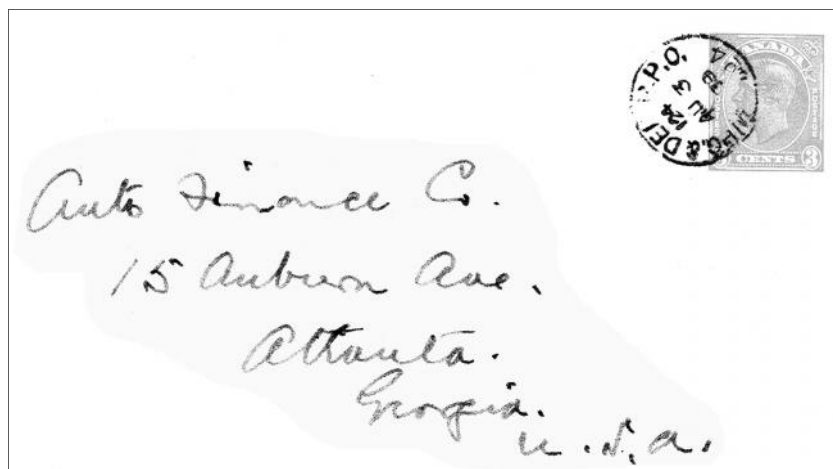 CANADA
3 CENTS 3
& DEL R.P.O.
124
AU 3
39
Auto Finance Co.
15 Auburn Ave.
Atlanta.
Georgia.
U.S.A.